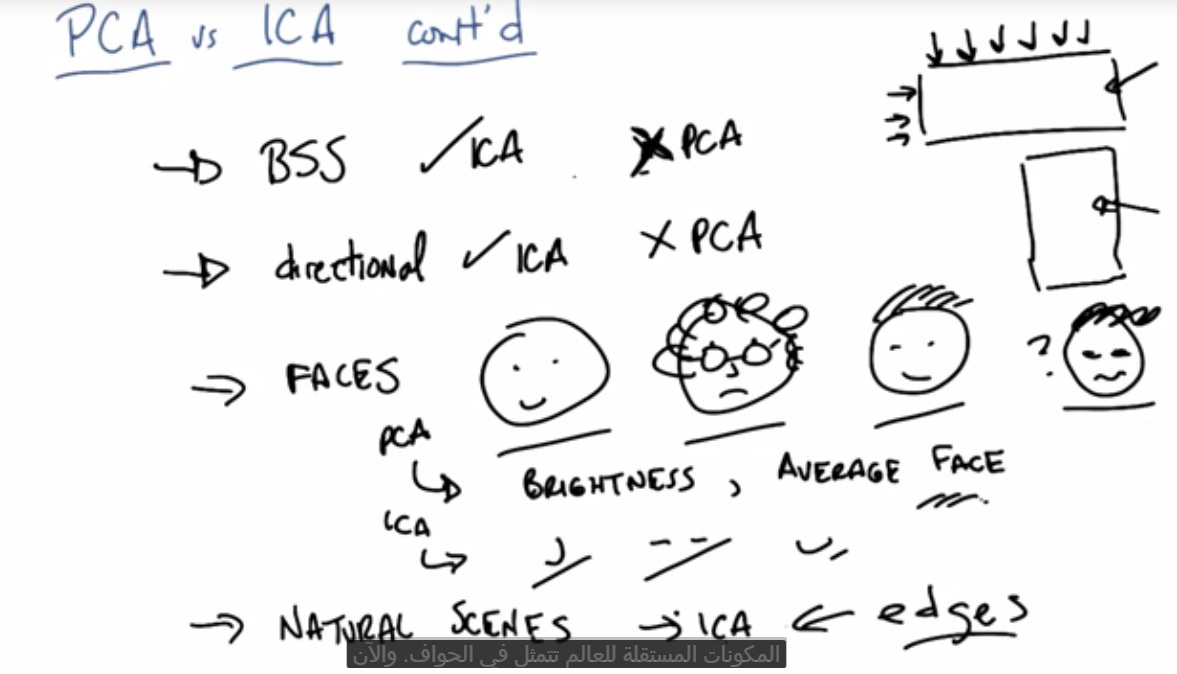 PCA vs ICA cont'd
BSS ✓ICA XPCA
directional ✓ICA XPCA
FACES
?
PCA
BRIGHTNESS, AVERAGE FACE
ICA
NATURAL SCENES → ICA ← edges
المكونات المستقلة للعالم تتمثل في الحواف. والآن